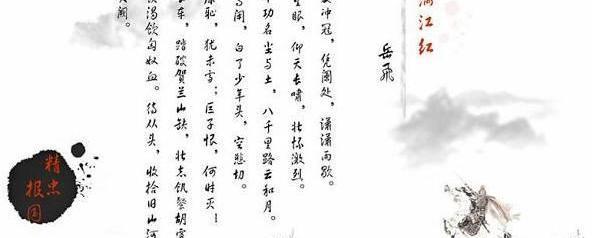 满江红
岳飛
发冲冠，凭阑处，潇潇雨歇。
望眼，仰天长啸，壮怀激烈。
十功名尘与土，八千里路云和月。
等闲，白了少年头，空悲切。
康耻，犹未雪；臣子恨，何时灭！
长车，踏破贺兰山缺，壮志饥餐胡虏
谈渴饮匈奴血。待从头，收拾旧山河
天阙。
精忠
报国